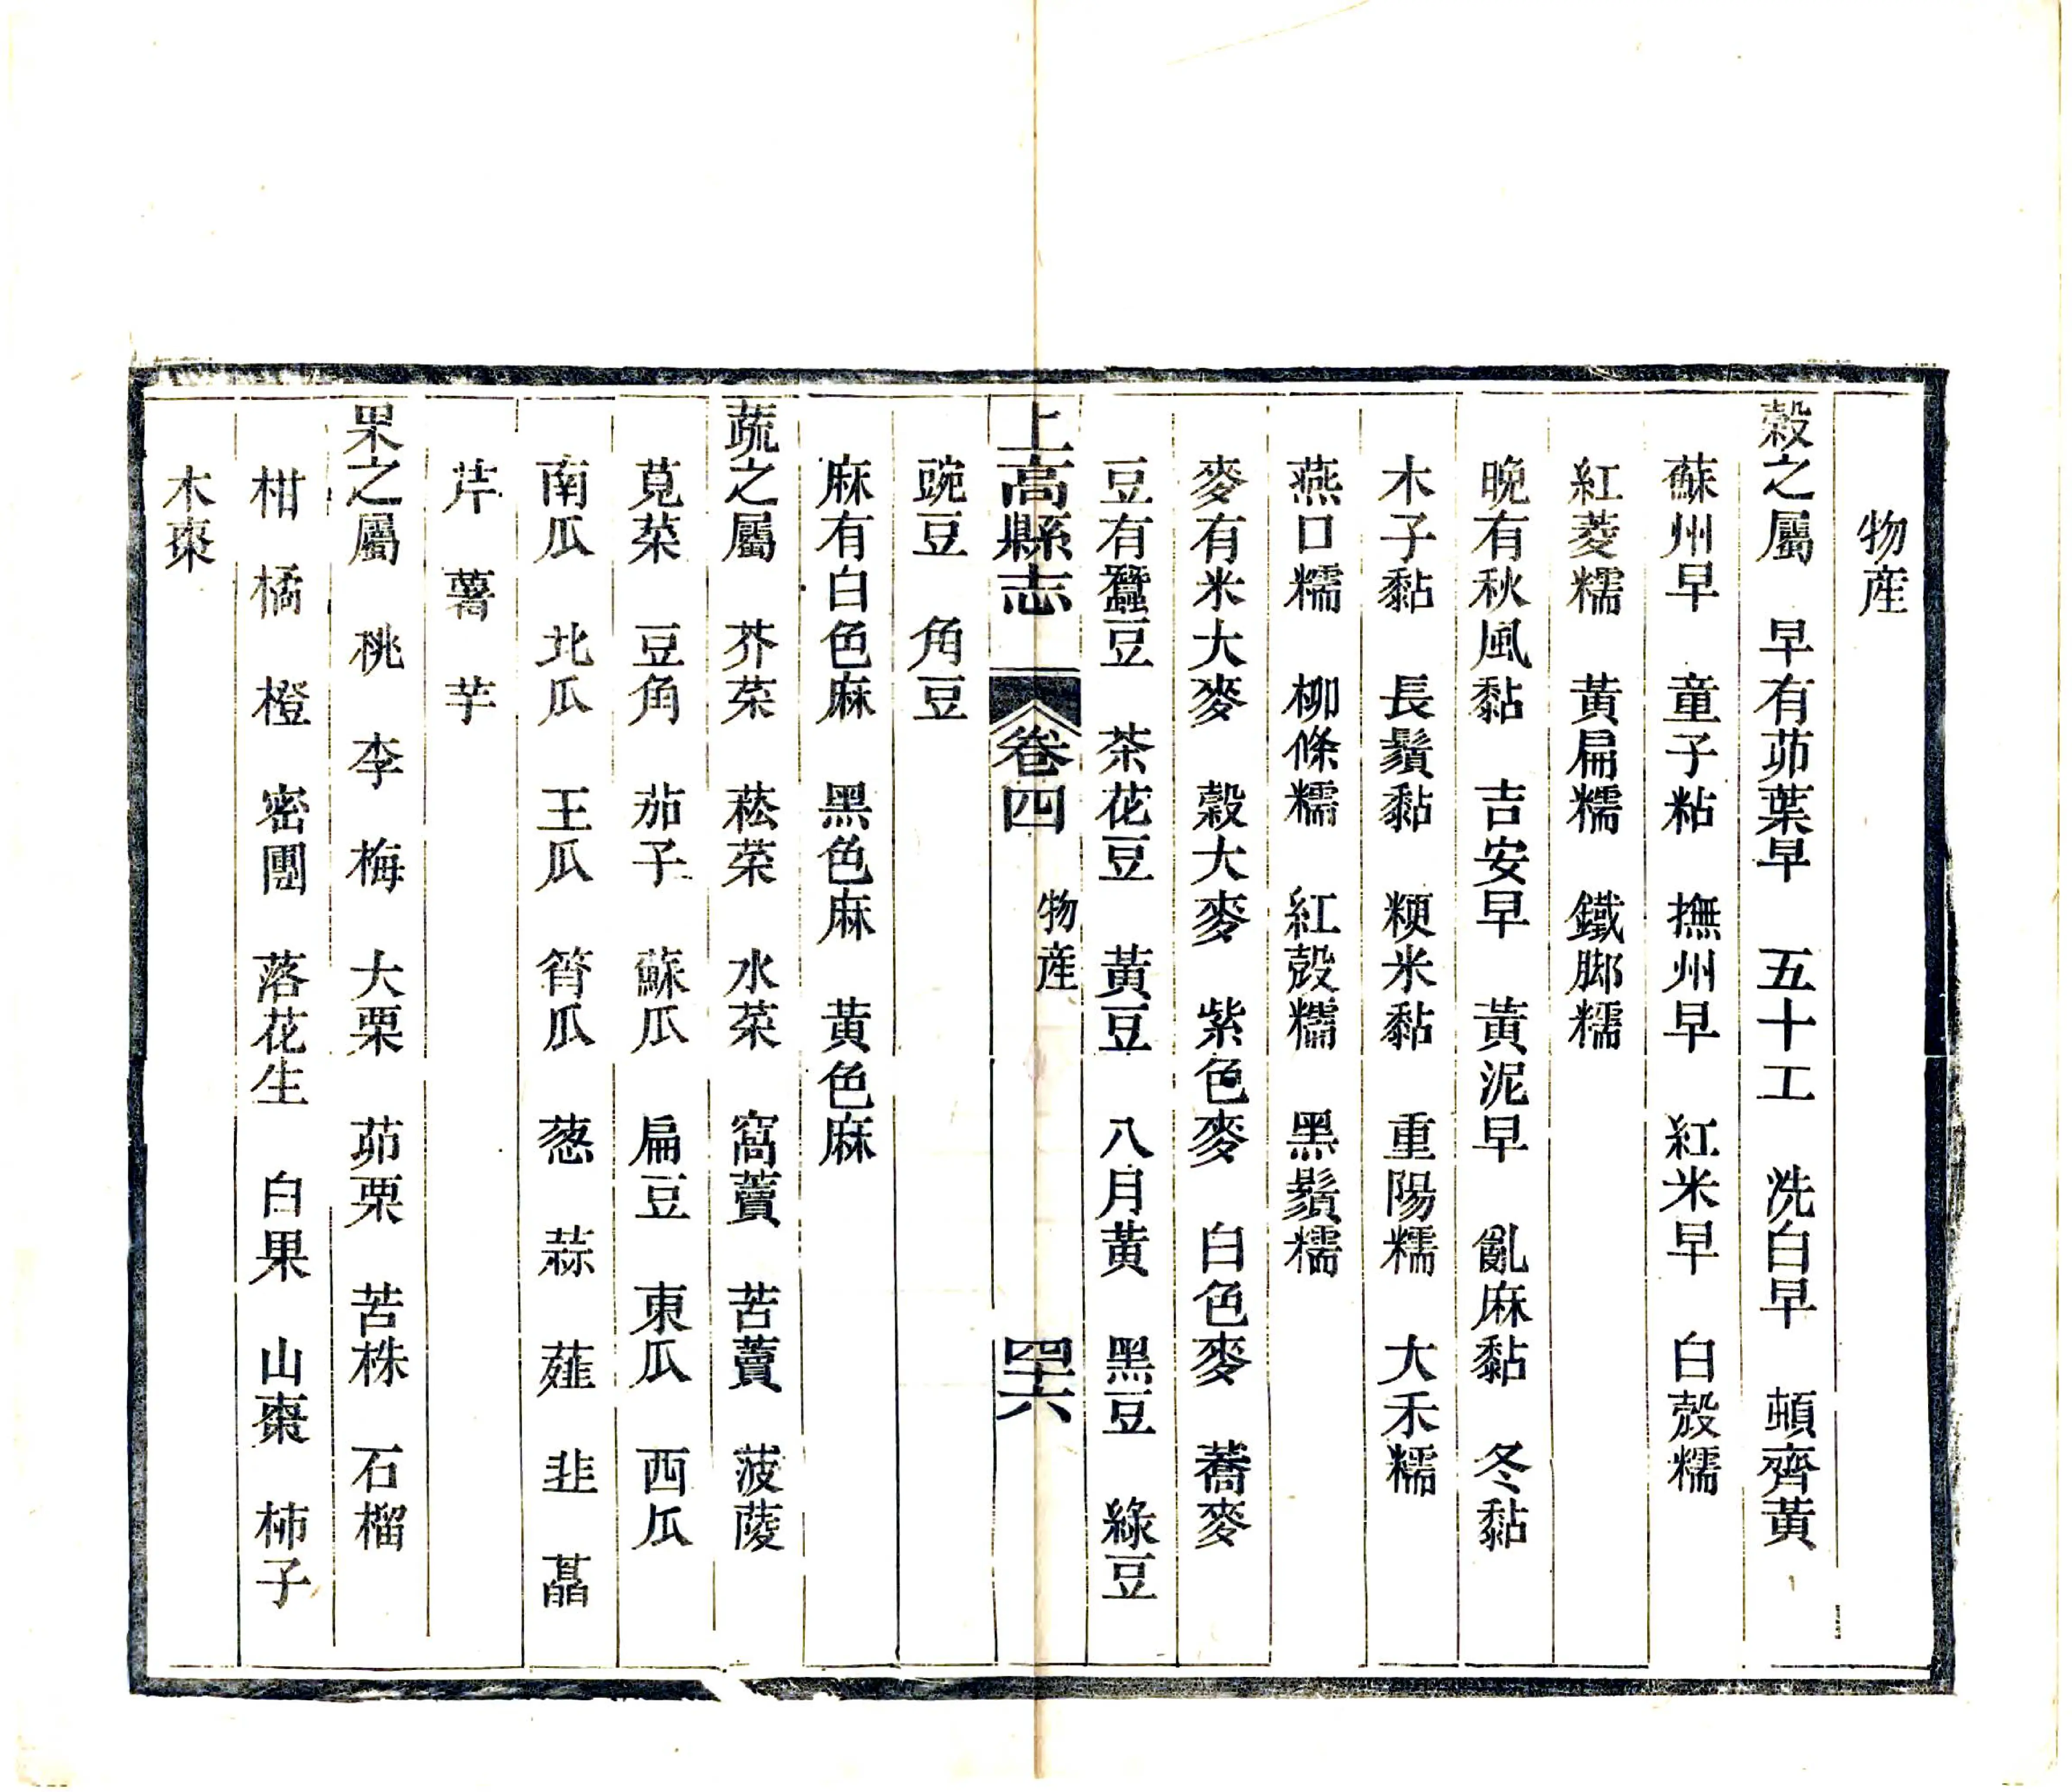 物産
穀之屬　早有茆葉早　五十工　洗白早　頓齊黃
蘇州早　童子粘　撫州早　紅米早　白殼糯
紅菱糯　黃扁糯　鐵脚糯
晚有秋風黏　吉安早　黃泥早　亂麻黏　冬黏
木子黏　長鬚黏　粳米黏　重陽糯　大禾糯
燕口糯　柳條糯　紅殼糯　黑鬚糯
麥有米大麥　穀大麥　紫色麥　白色麥　蕎麥
豆有蠶豆　茶花豆　黃豆　八月黃　黑豆　綠豆
上高縣志　卷四　物産　四十六
豌豆　角豆
麻有白色麻　黑色麻　黃色麻
蔬之屬　芥菜　菘菜　水菜　窩蕒　苦蕒　菠薐
莧菜　豆角　茄子　蘇瓜　扁豆　東瓜　西瓜
南瓜　北瓜　王瓜　筲瓜　葱　蒜　薤　韭　藠
芹　薯　芋
果之屬　桃　李　梅　大栗　茆栗　苦株　石榴
柑　橘　橙　密團　落花生　白果　山棗　柿子
木棗